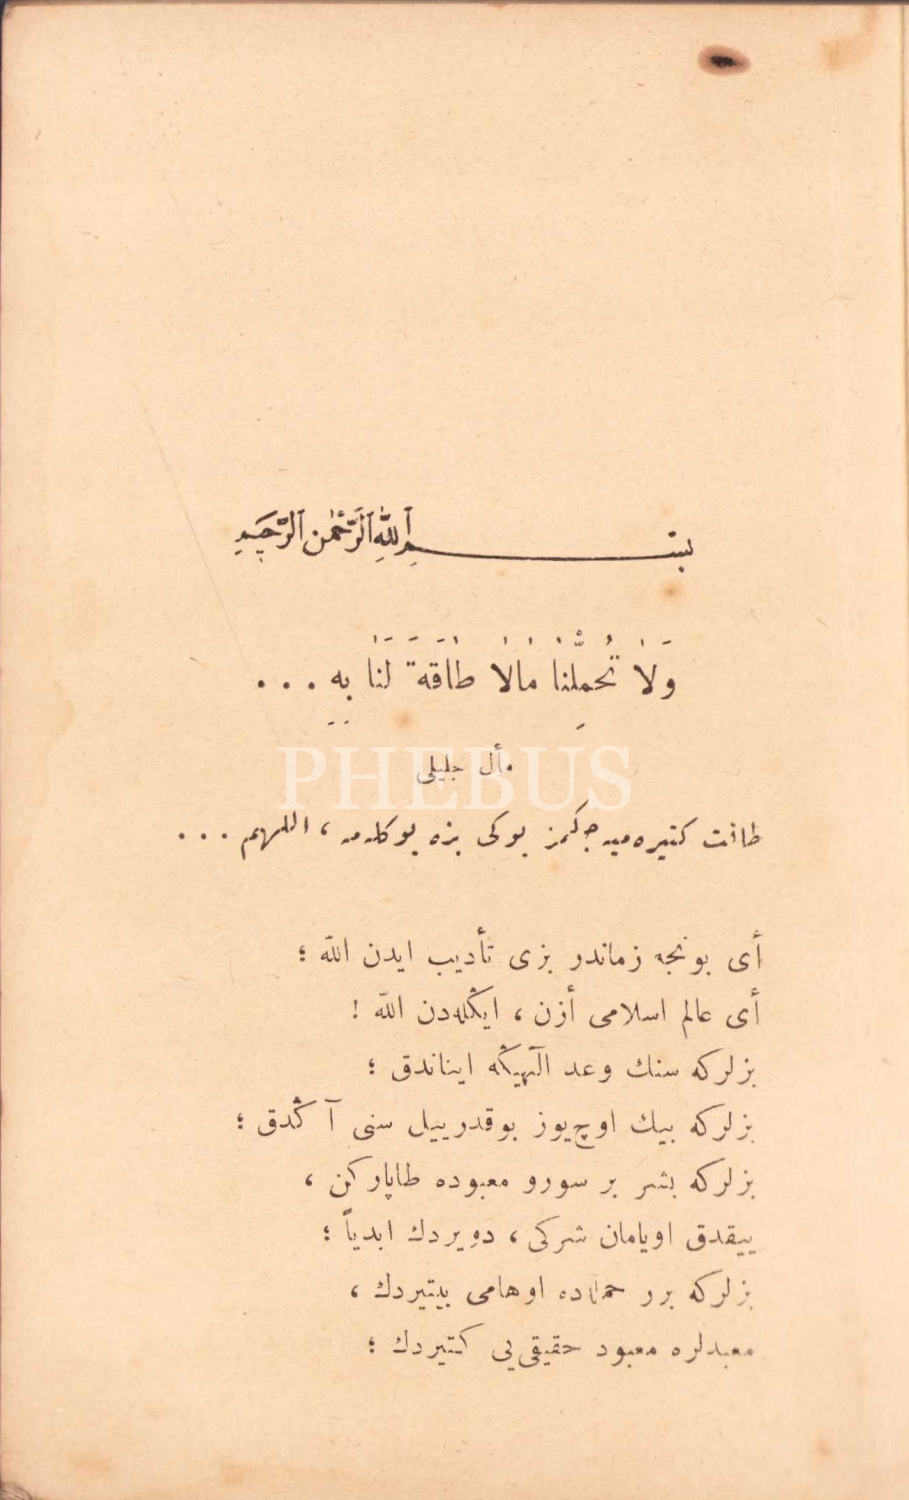 بسم الله الرحمن الرحيم
وَلَا تُحَمِّلْنَا مَالَا طَاقَةَ لَنَا بِهِ . . .
مأل جليلى
طاقت كتيره‌ميه‌جكمز يوكى بزه يوكله‌مه ، اللهم . . .
PHEBUS
أى بونجه زماندر بزى تأديب ايدن اللّه ؛
أى عالم اسلامى أزن ، ايڭله‌دن اللّه !
بزلركه سنك وعد الٓهيڭه ايناندق ؛
بزلركه بيك اوچ‌يوز بوقدر ييل سنى آڭدق ؛
بزلركه بشر بر سورو معبوده طاپاركن ،
ييقدق او يامان شركى ، دويردك ابدياً ؛
بزلركه برر حمله‌ده اوهامى بيتيردك ،
معبدلره معبود حقيقى‌يى كتيردك ؛